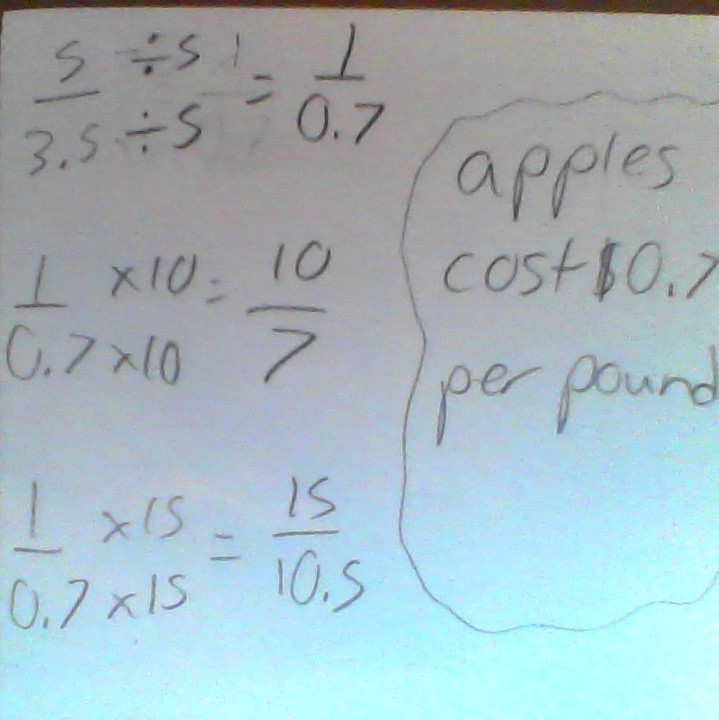 5 ÷5 = 1
3.5 ÷5 0.7
1 ×10 = 10
0.7 ×10 7
1 ×15 = 15
0.7 ×15 10.5
apples
cost $0.7
per pound